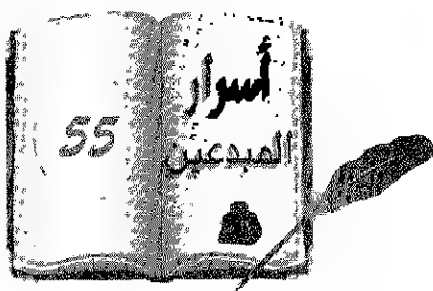 أسرار
المبدعين
55